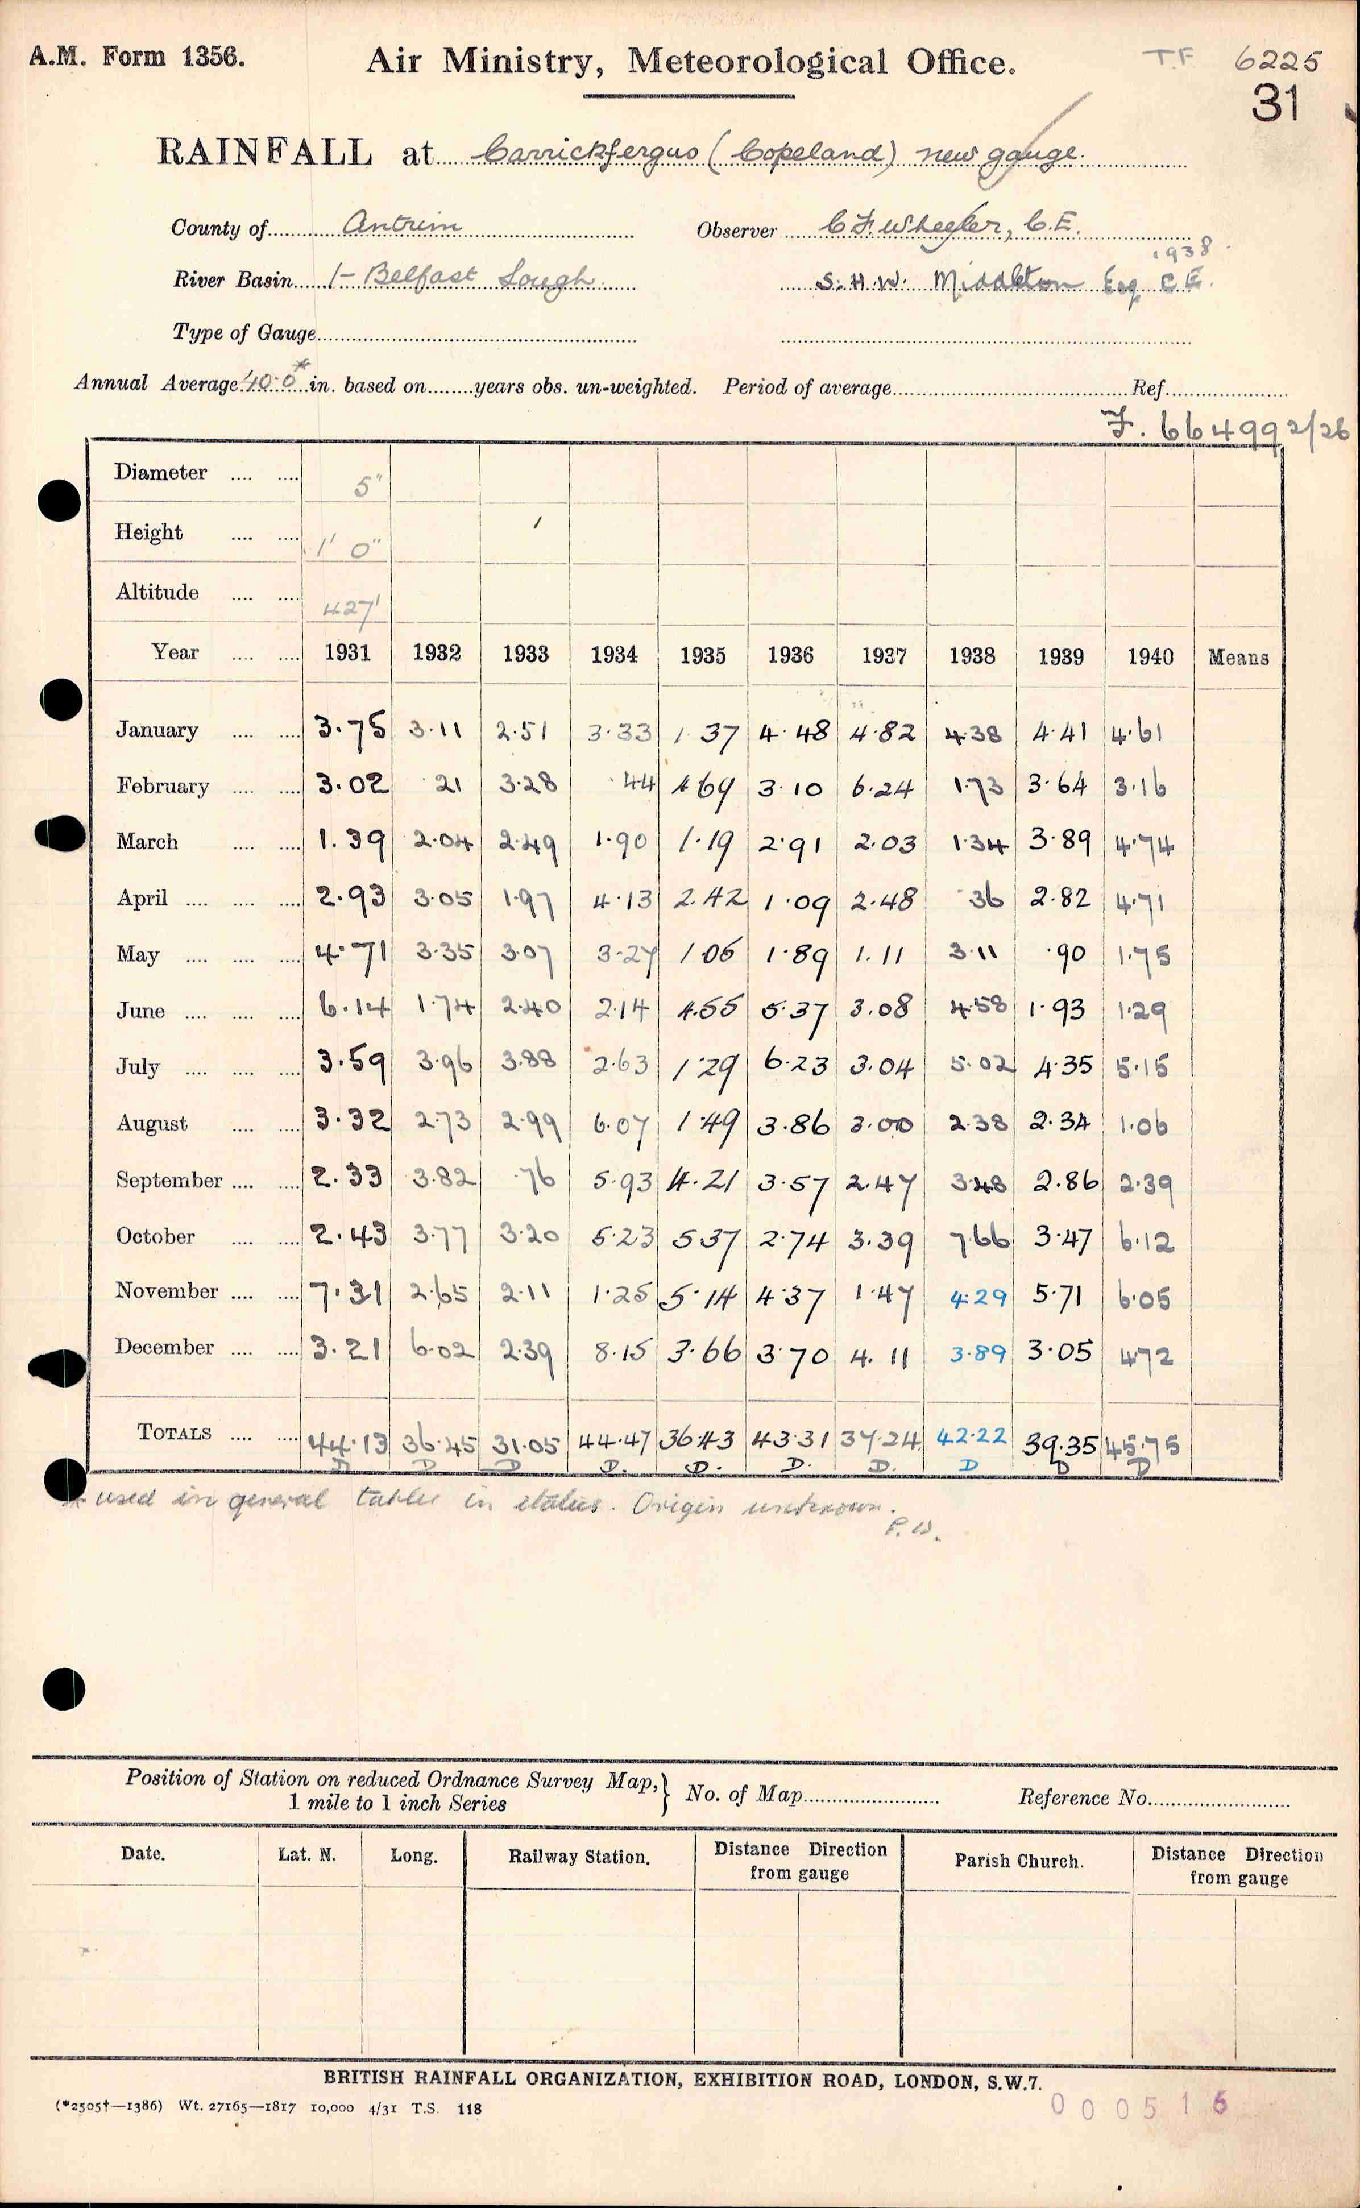 A.M. Form 1356. Air Ministry, Meteorological Office. T.F 6225
31
RAINFALL at Carrickfergus (Copeland) new gauge.
County of Antrim Observer C F Wheeler, C.E.
1938
River Basin 1- Belfast Lough S.H.W. Middleton Esq C E.
Type of Gauge
Annual Average 40.0* in. based on years obs. un-weighted. Period of average Ref.
F. 66499 2/26
Diameter 5"
Height 1' 0"
Altitude 427'
Year 1931 1932 1933 1934 1935 1936 1937 1938 1939 1940 Means
January 3.75 3.11 2.51 3.33 1.37 4.48 4.82 4.38 4.41 4.61
February 3.02 .21 3.28 .44 4.69 3.10 6.24 1.73 3.64 3.16
March 1.39 2.04 2.49 1.90 1.19 2.91 2.03 1.34 3.89 4.74
April 2.93 3.05 1.97 4.13 2.42 1.09 2.48 .36 2.82 4.71
May 4.71 3.35 3.07 3.27 1.05 1.89 1.11 3.11 .90 1.75
June 6.14 1.74 2.40 2.14 4.55 5.37 3.08 4.58 1.93 1.29
July 3.59 3.96 3.88 2.63 1.29 6.23 3.04 5.02 4.35 5.15
August 3.32 2.73 2.99 6.07 1.49 3.86 3.00 2.38 2.34 1.06
September 2.33 3.82 .76 5.93 4.21 3.57 2.47 3.48 2.86 2.39
October 2.43 3.77 3.20 5.23 5.37 2.74 3.39 7.66 3.47 6.12
November 7.31 2.65 2.11 1.25 5.14 4.37 1.47 4.29 5.71 6.05
December 3.21 6.02 2.39 8.15 3.66 3.70 4.11 3.89 3.05 4.72
TOTALS 44.13 36.45 31.05 44.47 36.43 43.31 37.24 42.22 39.35 45.75
D D D D. D. D. D. D D D
* used in general table in italics. Origin unknown.
P.W.
Position of Station on reduced Ordnance Survey Map, } No. of Map Reference No.
1 mile to 1 inch Series
Date. Lat. N. Long. Railway Station. Distance Direction from gauge Parish Church. Distance Direction from gauge
BRITISH RAINFALL ORGANIZATION, EXHIBITION ROAD, LONDON, S.W.7.
(*2505†—1386) Wt. 27165—1817 10,000 4/31 T.S. 118
000516